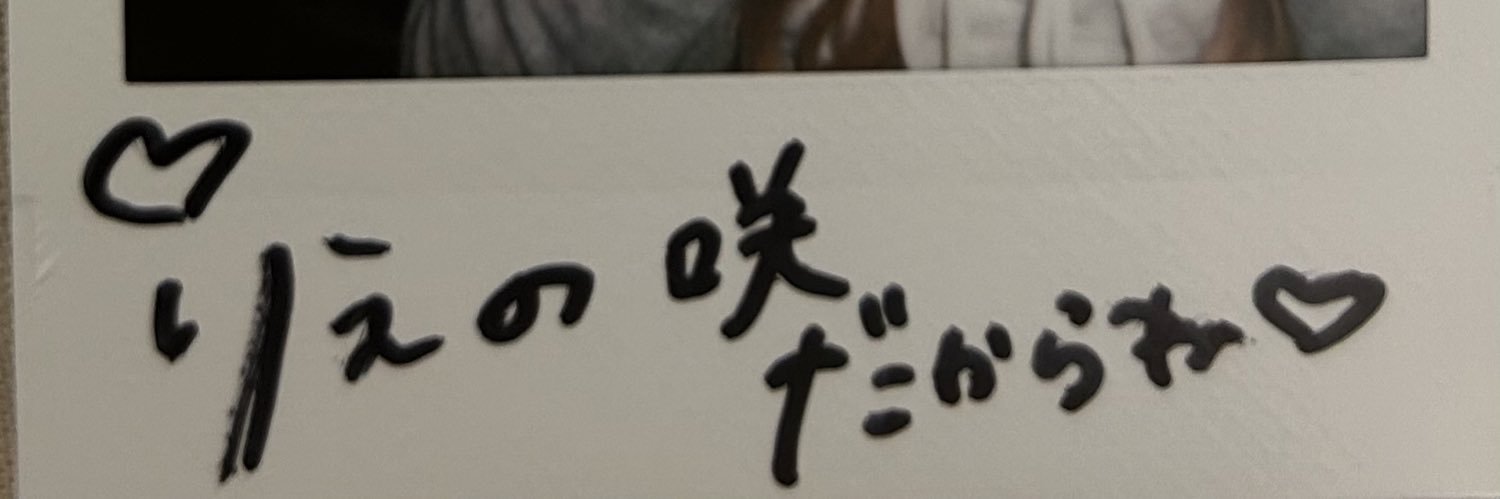 ♡りえの咲
だからね♡